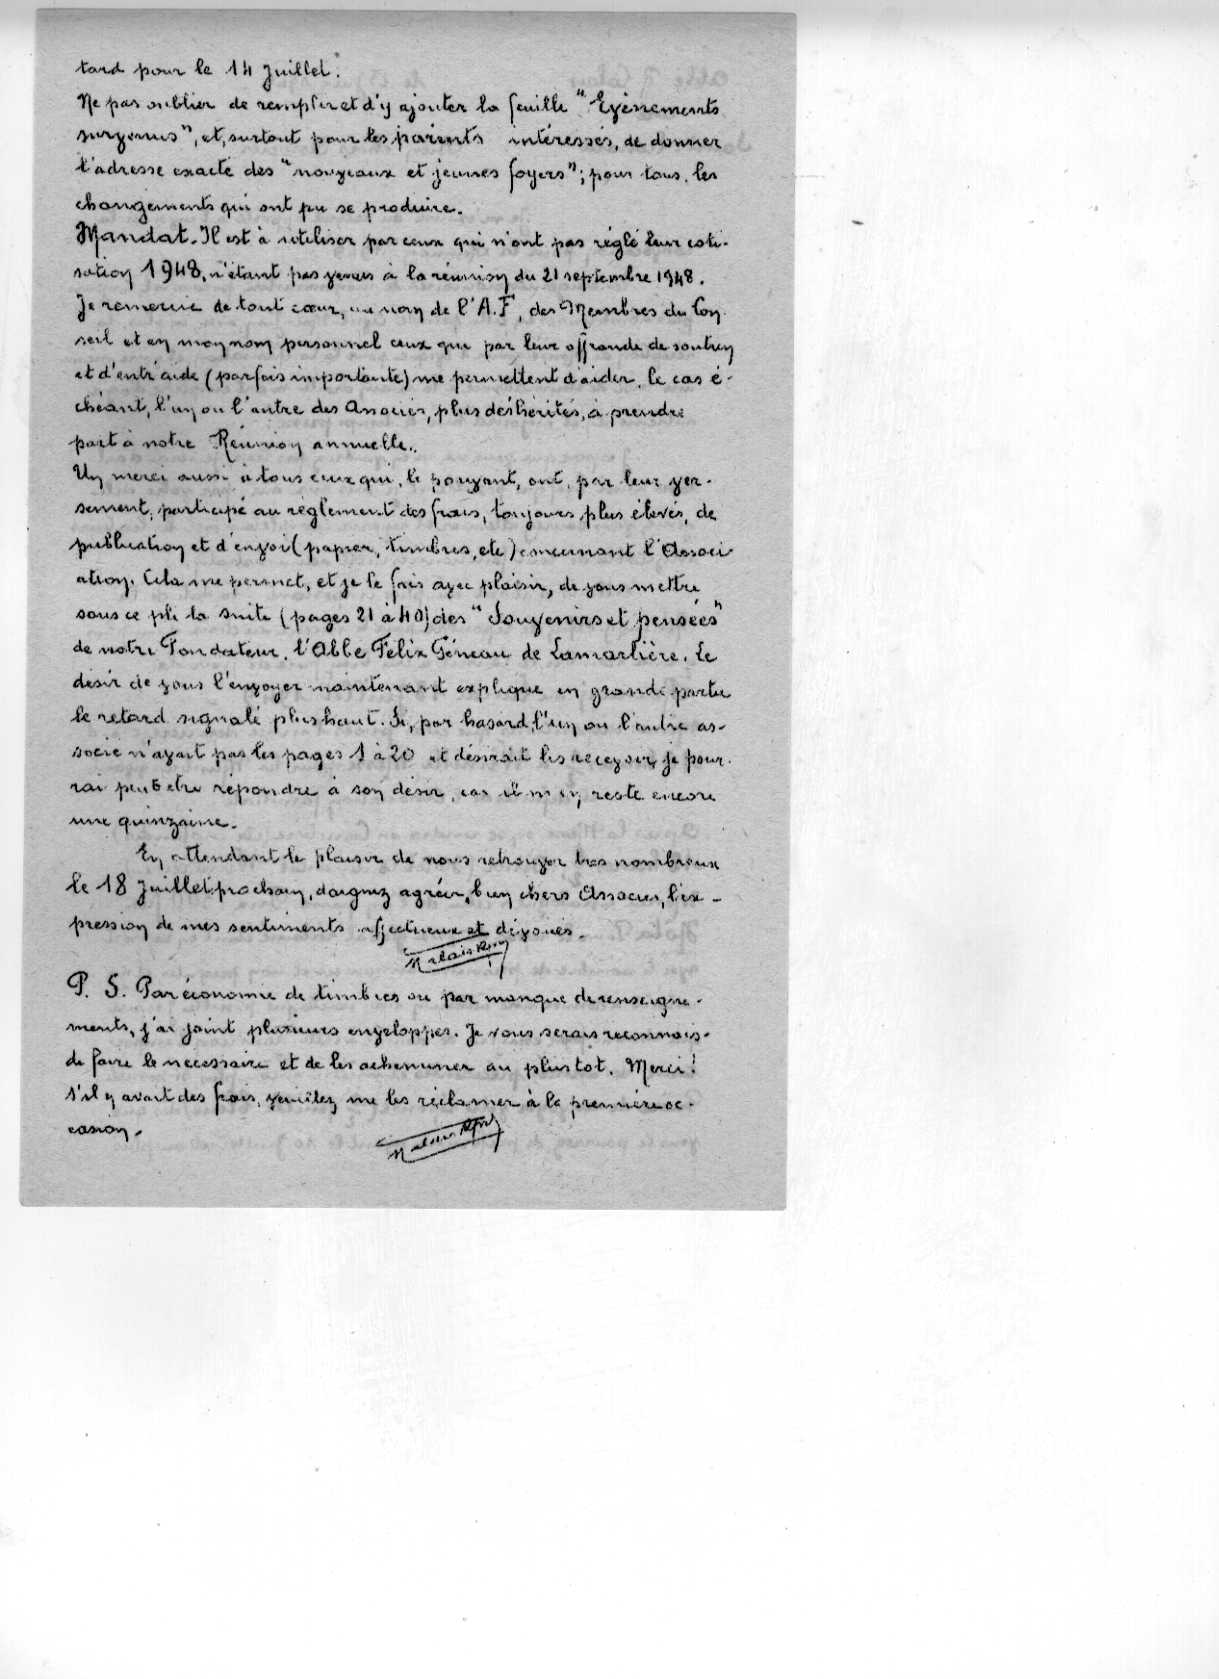 tard pour le 14 Juillet.
Ne pas oublier de remplir et d'y ajouter la feuille "Evènements
survenus", et, surtout pour les parents intéressés, de donner
l'adresse exacte des "nouveaux et jeunes foyers"; pour tous, les
changements qui ont pu se produire.
Mandat. Il est à utiliser par ceux qui n'ont pas réglé leur coti-
sation 1948, n'étant pas venus à la réunion du 21 septembre 1948.
Je remercie de tout cœur, au nom de l'A.F, des Membres du Con
seil et en mon nom personnel ceux que par leur offrande de soutien
et d'entr'aide (parfois importante) me permettent d'aider, le cas é-
chéant, l'un ou l'autre des Associés, plus déshérités, à prendre
part à notre Réunion annuelle.
Un merci aussi à tous ceux qui, le pouvant, ont, par leur ver-
sement, participé au règlement des frais, toujours plus élevés, de
publication et d'envoi (papier, timbres, etc) concernant l'Associ-
ation. Cela me permet, et je le fais avec plaisir, de vous mettre
sous ce pli la suite (pages 21 à 40) des "Souvenirs et pensées"
de notre Fondateur, l'Abbé Félix Féneau de Lamarlière. Le
désir de vous l'envoyer maintenant explique en grande partie
le retard signalé plus haut. Si, par hasard, l'un ou l'autre as-
socié n'avait pas les pages 1 à 20 et désirait les recevoir, je pour-
rai peut etre répondre à son désir, car il m'en reste encore
une quinzaine.
En attendant le plaisir de nous retrouver très nombreux
le 18 Juillet prochain, daignez agréer, bien chers Associés, l'ex-
pression de mes sentiments affectueux et dévoués.
P. S. Par économie de timbres ou par manque de renseigne-
ments, j'ai joint plusieurs enveloppes. Je vous serais reconnais-
de faire le nécessaire et de les acheminer au plus tot. Merci!
S'il y avait des frais, veuillez me les réclamer à la première oc-
casion.